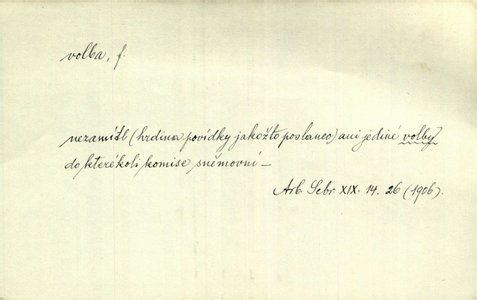 volba, f.
nezamítl (hrdina povídky jakožto poslanec) ani jediné volby
do kterékoli komise sněmovní –
Arb. Sebr. XIX. 14. 26 (1906).